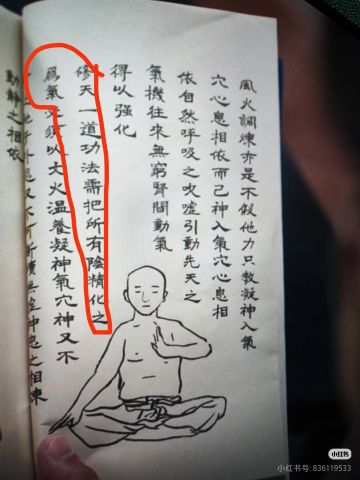 風火調煉亦是不假他力只教凝神入氣
穴心息相依而已神入氣穴心息相
依自然呼吸之吹噓引動先天之
氣機往來無窮腎間動氣
得以強化
修天一道功法需把所有陰精化之
爲氣必須以文火溫養凝神氣穴神又不
又不可
之相
之相依
小红书
小红书号: 836119533